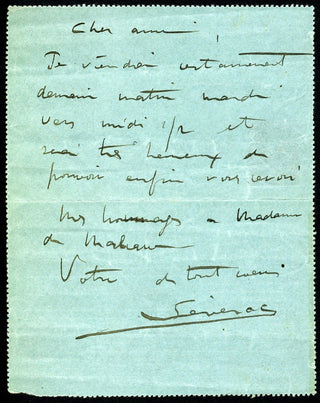 Cher ami,
Je viendrai certainement
demain matin mardi
vers midi 1/2 et
serai très heureux de
pouvoir enfin vous revoir
Mes hommages a Madame
de
Votre de tout coeur
Séverac